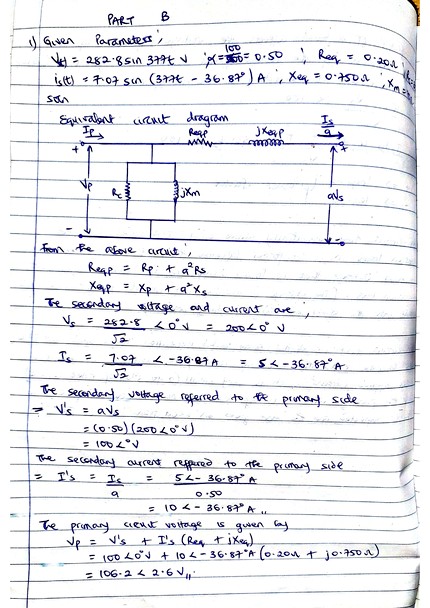 PART B
1) Given Parameters;
Vs(t) = 282.8 sin 377t V ; a = 100/200 = 0.50 ; Req = 0.20Ω
is(t) = 7.07 sin (377t - 36.87°) A ; Xeq = 0.750Ω ; Xm
Equivalent circuit diagram
Ip Reqp jXeqp Is/a
+ +
Vp Rc jXm aVs
- -
From the above circuit;
Reqp = Rp + a²Rs
Xeqp = Xp + a²Xs
The secondary voltage and current are;
Vs = 282.8/√2 <0° V = 200<0° V
Is = 7.07/√2 <-36.87A = 5<-36.87°A
The secondary voltage referred to the primary side
⇒ V's = aVs
= (0.50)(200<0°V)
= 100<°V
The secondary current reffered to the primary side
= I's = Is/a = 5<-36.87°A/0.50
= 10<-36.87°A,,
The primary circuit voltage is given by
Vp = V's + I's (Req + jXeq)
= 100<0°V + 10<-36.87°A (0.20Ω + j0.750Ω)
= 106.2 < 2.6 V,,